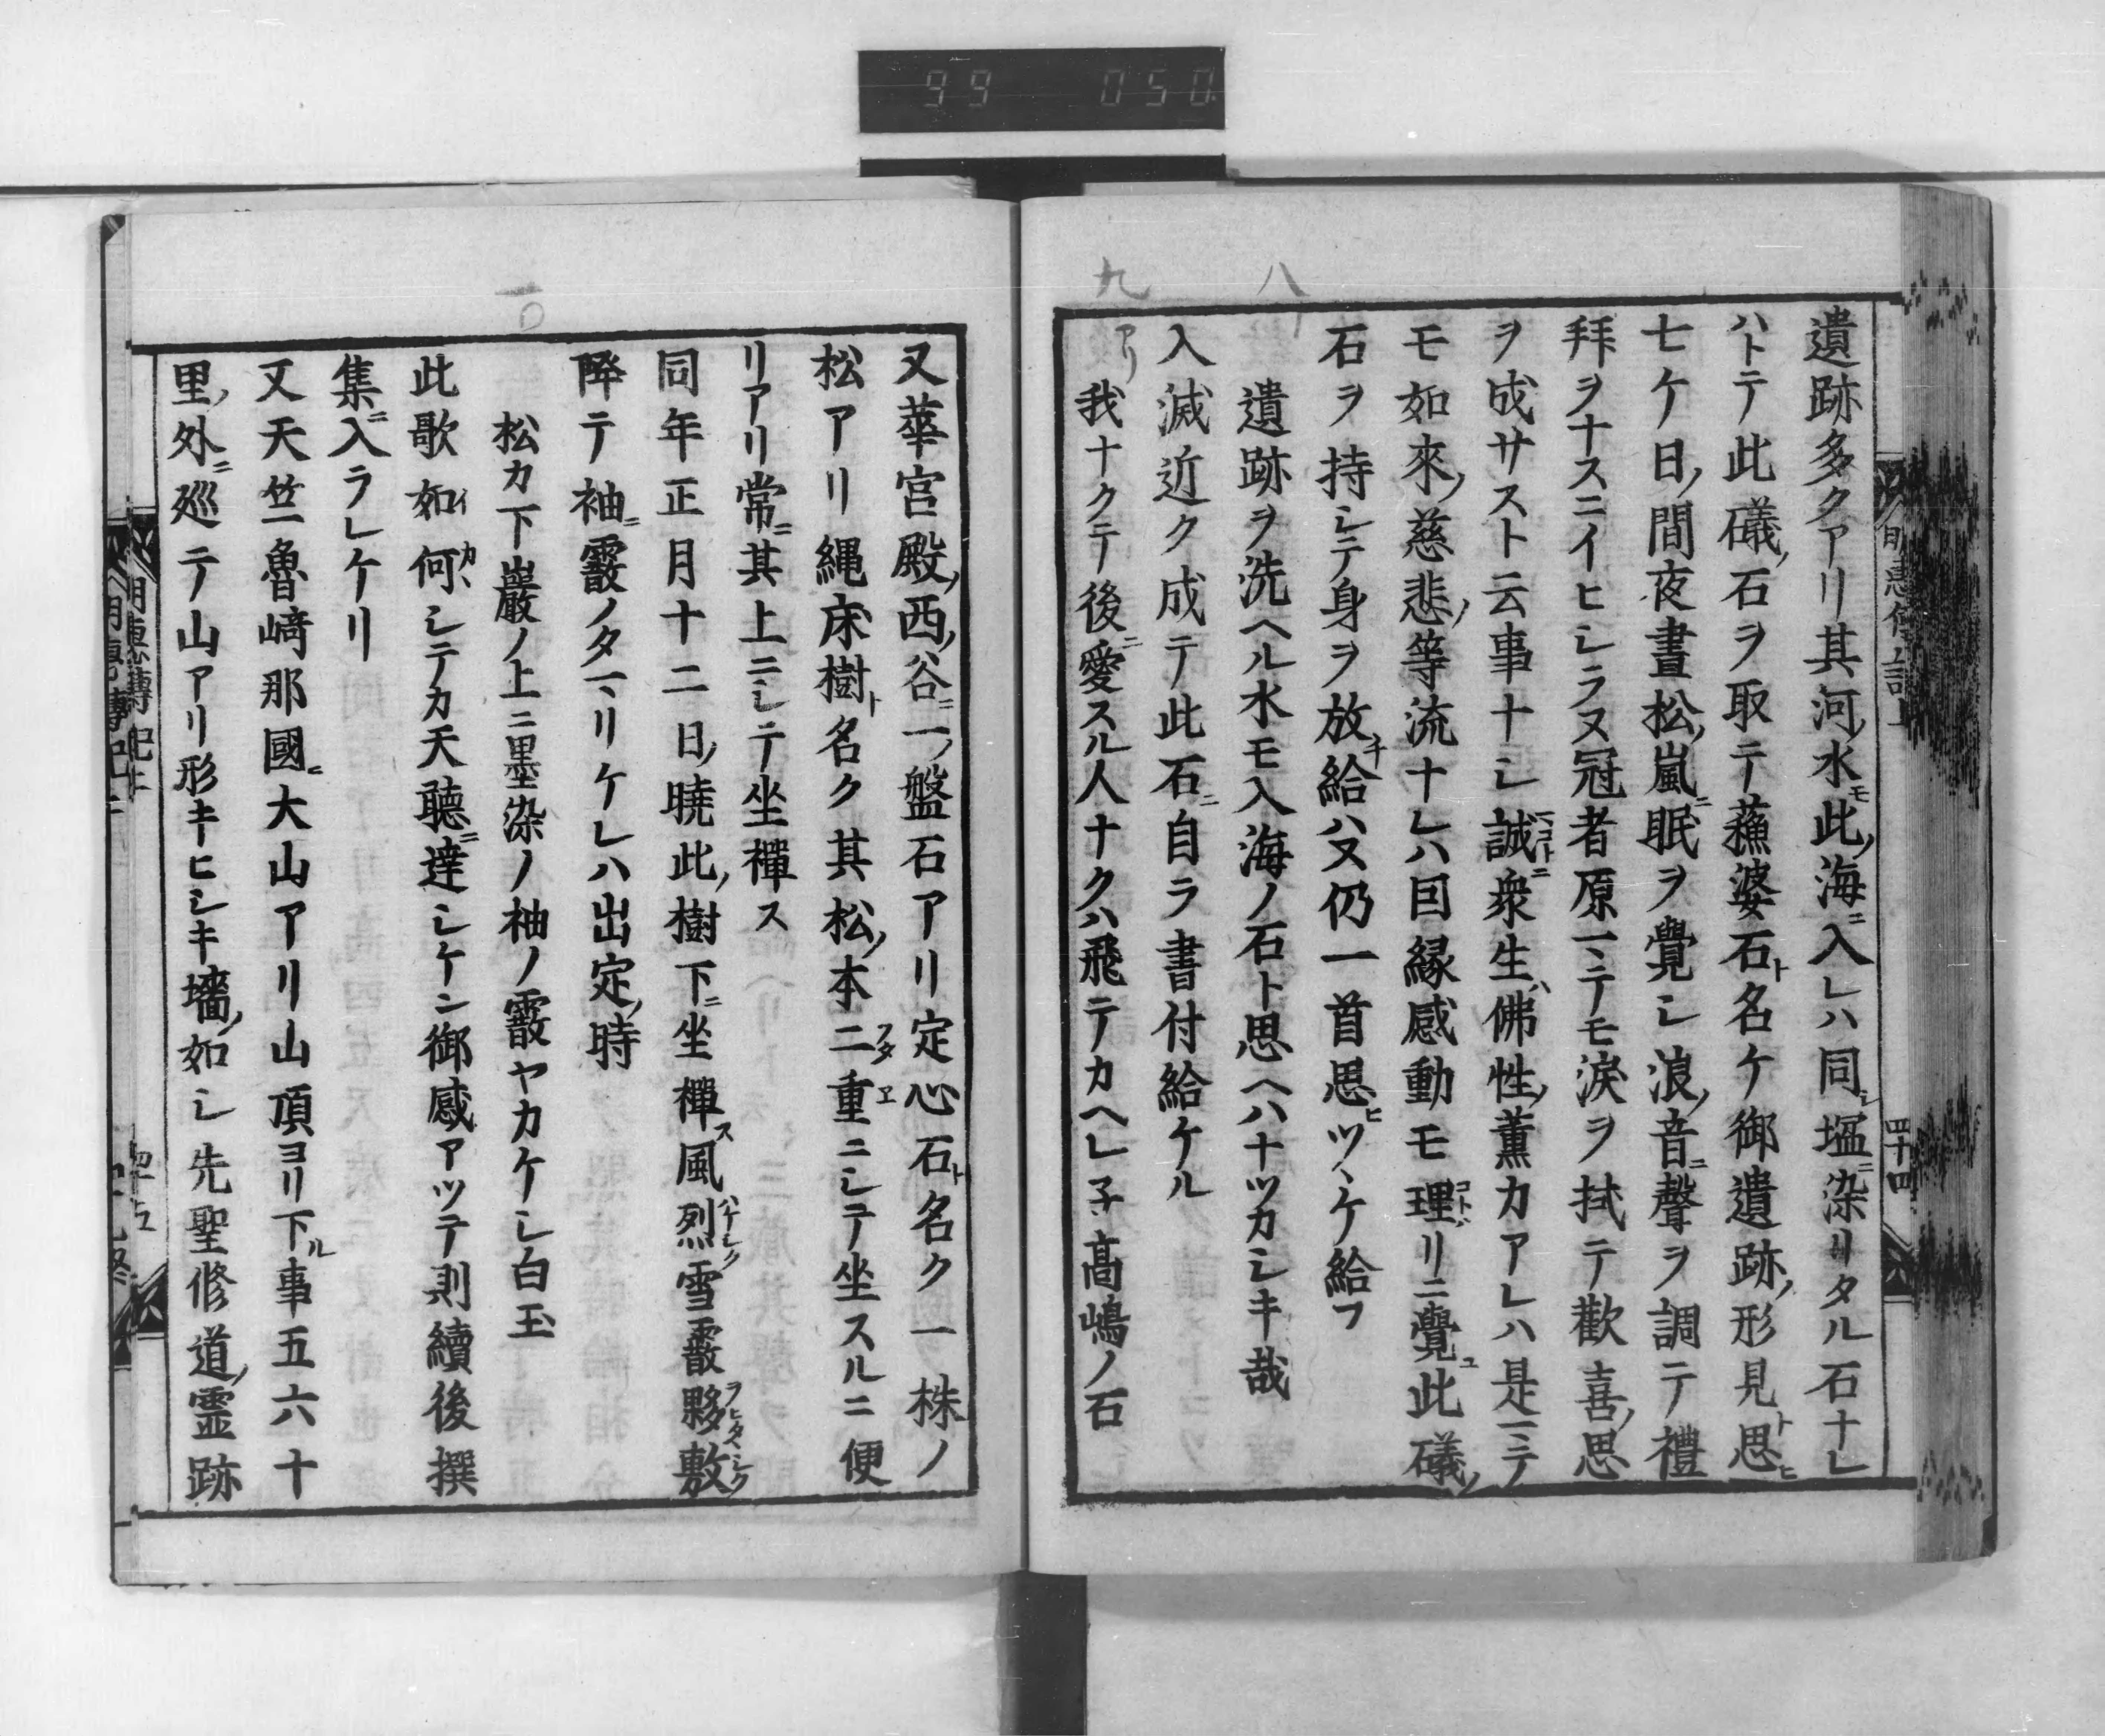 99 050
八
九
遺跡多クアリ其河ノ水モ此ノ海ニ入レハ同シ塩ニ染リタル石ナレ
ハトテ此礒ノ石ヲ取テ蘓婆石ト名ケ御遺跡ノ形見ト思ヒ
七ケ日ノ間夜晝松ノ嵐ニ眠ヲ覺シ浪ノ音ニ聲ヲ調テ禮
拜ヲナスニイヒシラヌ冠者原ニテモ淚ヲ拭テ歡喜ノ思
ヲ成サスト云事ナシ誠マコトニ衆生ハ佛性ノ薫カアレハ是ニテ
モ如來ノ慈悲ノ等流ナレハ因縁感動モ理コトハリニ覺ユ此礒ノ
石ヲ持シテ身ヲ放チ給ハ又仍一首思ヒツヽケ給フ
遺跡ヲ洗ヘル水モ入海ノ石ト思ヘハナツカシキ哉
入滅近ク成テ此石ニ自ラ書付給ケル
アリ
我ナクテ後ニ愛スル人ナクハ飛テカヘレ子高嶋ノ石
明惠傳記上
四十四
一〇
又華宮殿ノ西ノ谷ニ一ノ盤石アリ定心石ト名ク一株ノ
松アリ縄床樹ト名ク其松ノ本二重フタヱニシテ坐スルニ便
リアリ常ニ其上ニシテ坐禪ス
同年正月十二日ノ曉此ノ樹下ニ坐禪ス風烈ハケシク雪霰夥敷ヲヒタヽシク
降テ袖ニ霰ノタマリケレハ出定ノ時
松カ下巖ノ上ニ墨染ノ袖ノ霰ヤカケシ白玉
此歌如何イカヽシテカ天聽ニ達シケン御感アツテ則續後撰
集ニ入ラレケリ
又天竺魯﨑那國ニ大山アリ山頂ヨリ下ル事五六十
里ノ外ニ廵テ山アリ形キヒシキ墻ノ如シ先聖修道ノ霊跡
明惠傳記上
四十五